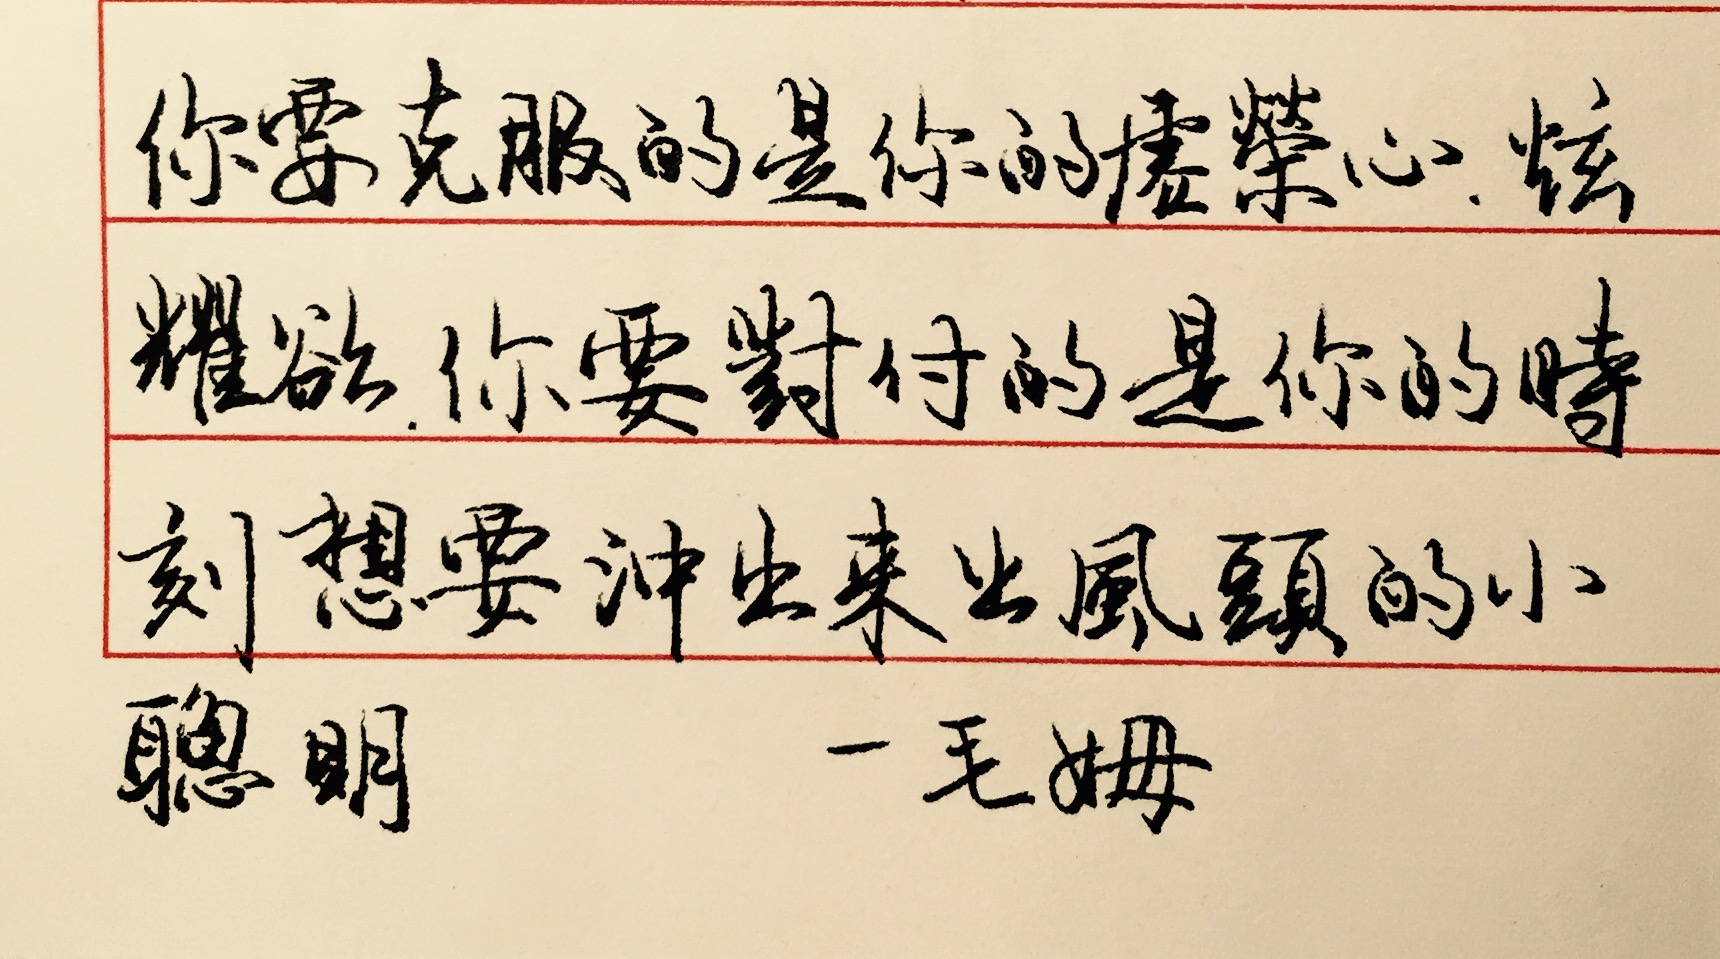 你要克服的是你的虛榮心.炫
耀欲.你要對付的是你的時
刻想要沖出來出風頭的小
聰明 一毛姆